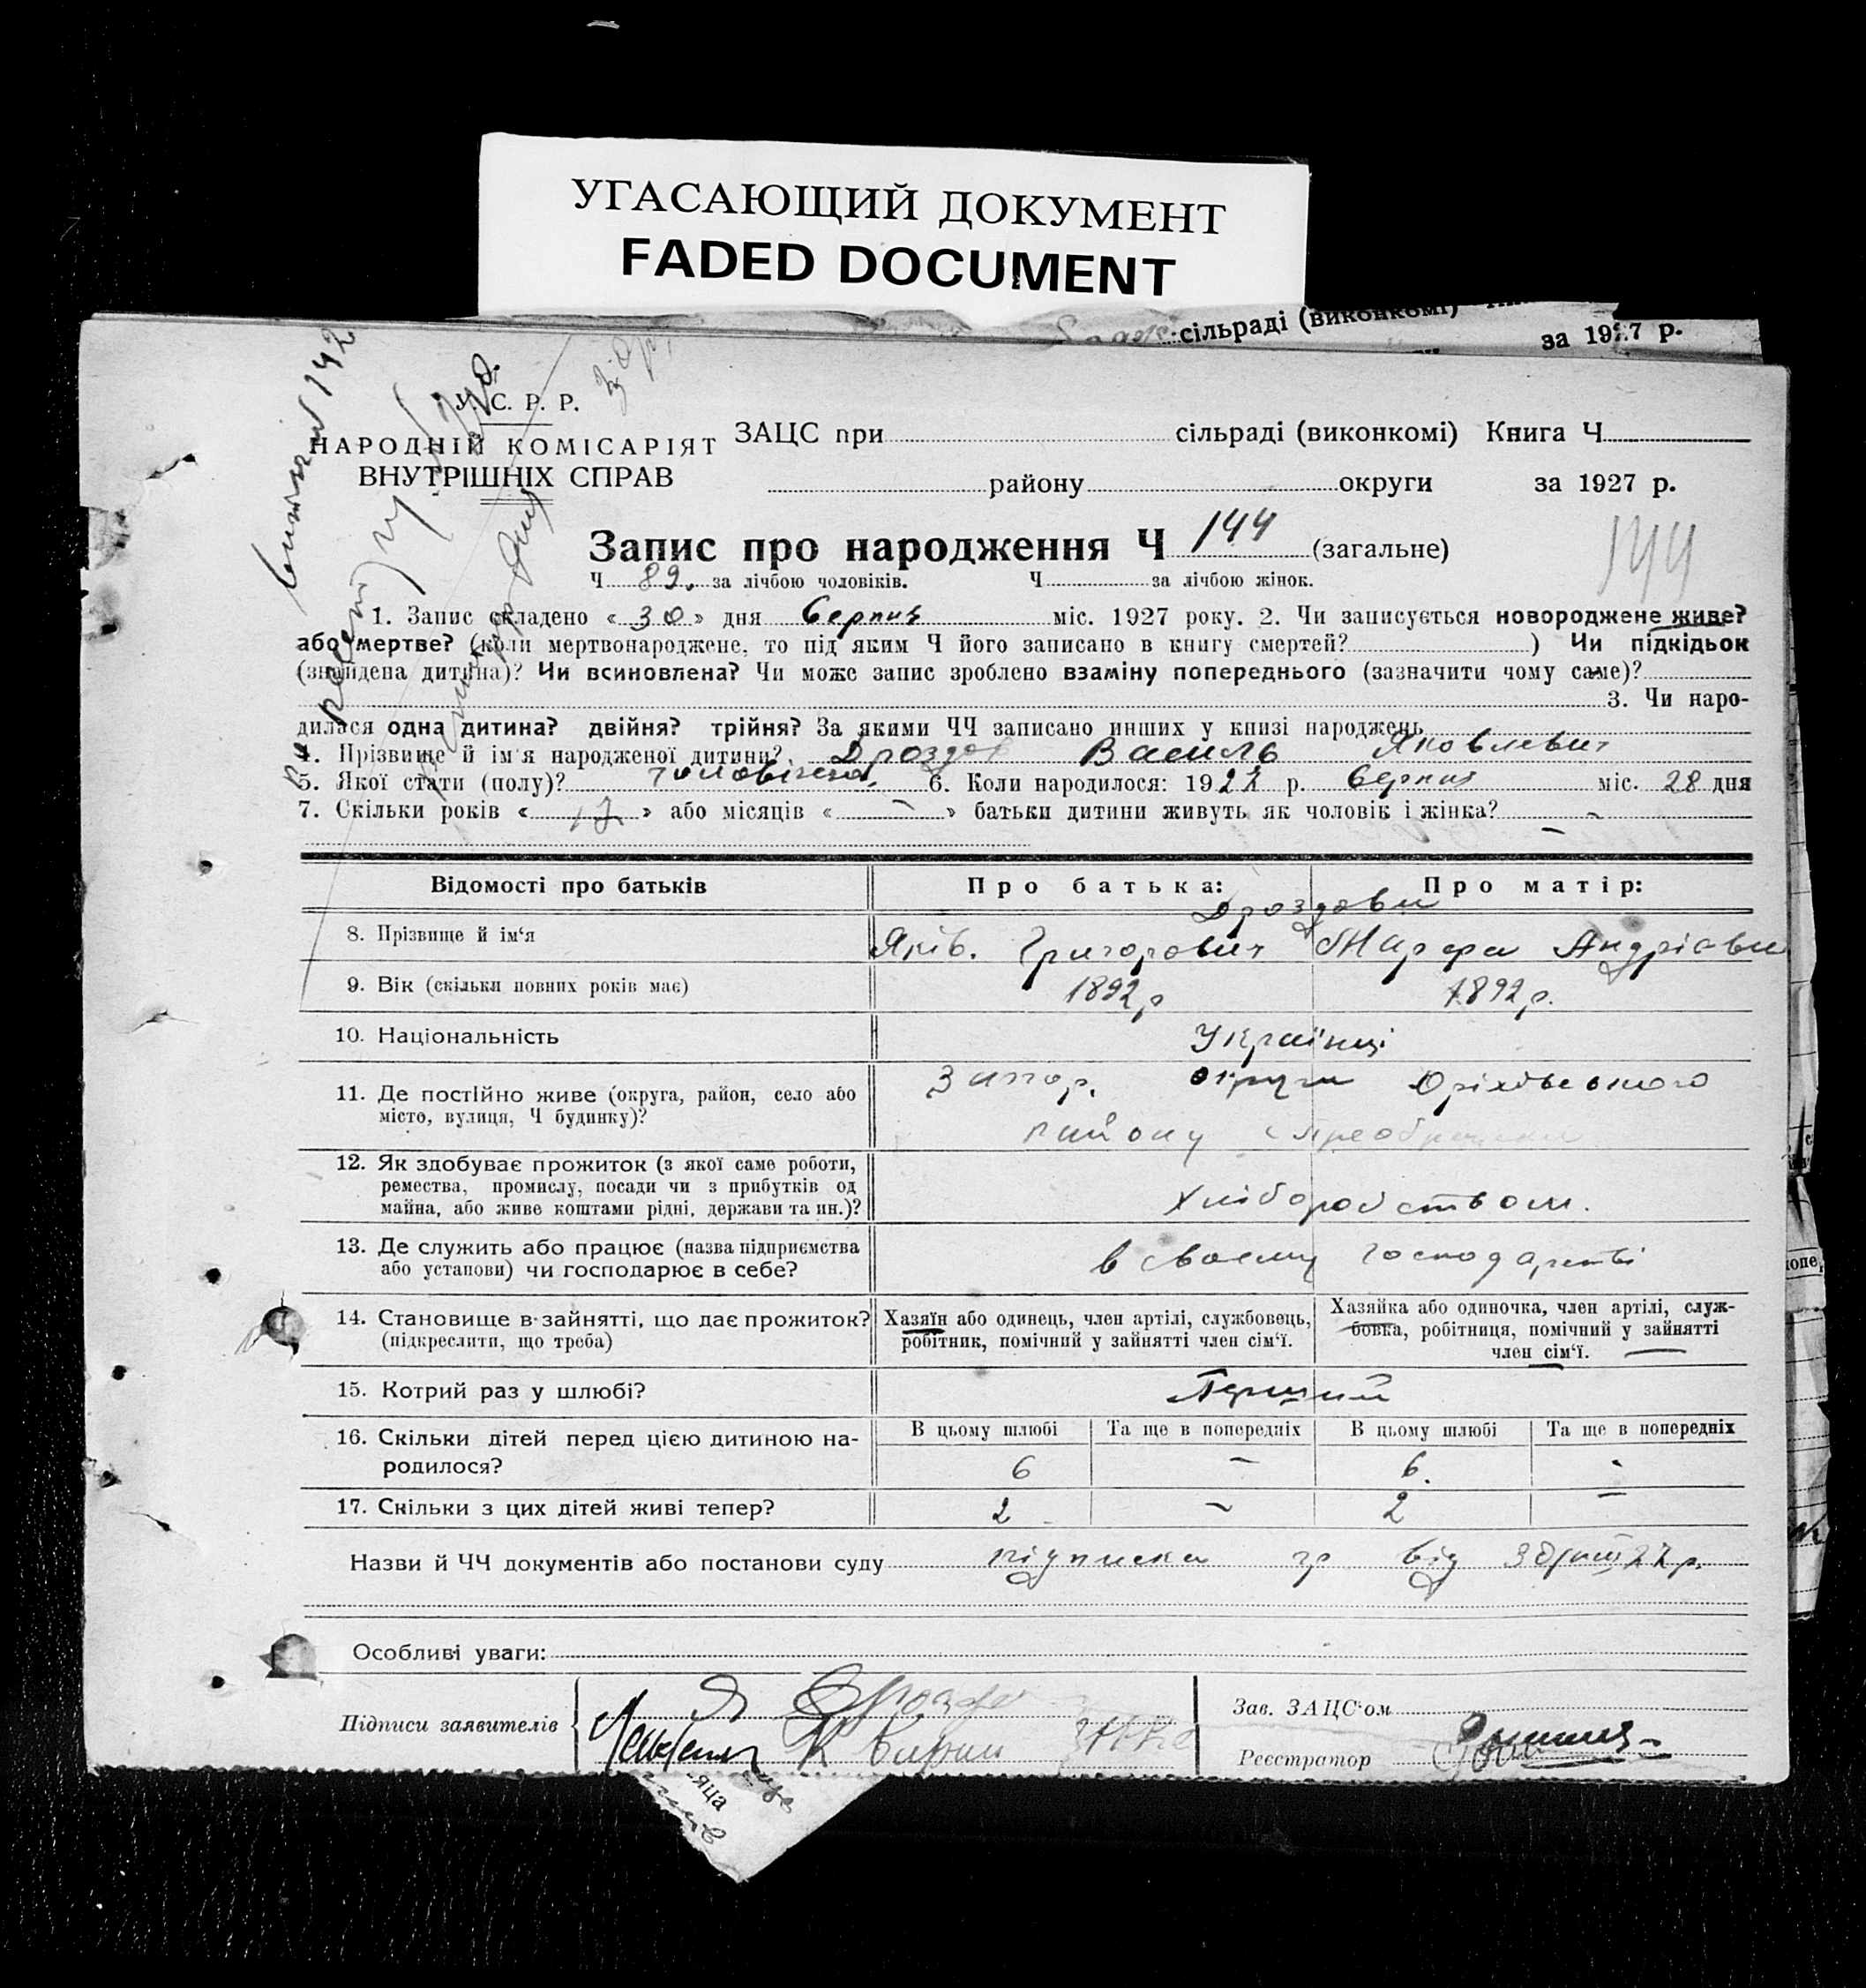 УГАСАЮЩИЙ ДОКУМЕНТ
FADED DOCUMENT
сільраді (виконкомі)
за 1927 р.
У. С. Р. Р.
НАРОДНІЙ КОМІСАРІЯТ
ВНУТРІШНІХ СПРАВ
ЗАЦС при сільраді (виконкомі) Книга Ч
району округи за 1927 р.
Запис про народження Ч 144 (загальне)
144
Ч 89. за лічбою чоловіків. Ч за лічбою жінок.
1. Запис складено « 30 » дня Серпня міс. 1927 року. 2. Чи записується новороджене живе?
або мертве? (коли мертвонароджене, то під яким Ч його записано в книгу смертей? ) Чи підкідьок
(знайдена дитина)? Чи всиновлена? Чи може запис зроблено взаміну попереднього (зазначити чому саме)?
3. Чи наро-
дилася одна дитина? двійня? трійня? За якими ЧЧ записано инших у книзі народжень
4. Прізвище й ім'я народженої дитини? Дроздов Василь Яковлевич
5. Якої стати (полу)? чоловічена. 6. Коли народилося: 1927 р. Серпня міс. 28 дня
7. Скільки років « 17 » або місяців « – » батьки дитини живуть як чоловік і жінка? –
Відомості про батьків
Про батька: Про матір:
Дроздови
8. Прізвище й ім'я
Яків. Григорович Марфа Андріовна
9. Вік (скільки повних років має)
1892 р 1892 р.
10. Національність
Українці
11. Де постійно живе (округа, район, село або
місто, вулиця, Ч будинку)?
Запор. округи Оріхівського
району с Преображенка
12. Як здобуває прожиток (з якої саме роботи,
ремества, промислу, посади чи з прибутків од
майна, або живе коштами рідні, держави та ин.)?
Хліборобством.
13. Де служить або працює (назва підприємства
або установи) чи господарює в себе?
в своему господарстві
14. Становище в зайнятті, що дає прожиток?
(підкреслити, що треба)
Хазяїн або одинець, член артілі, службовець,
робітник, помічний у зайнятті член сім'ї.
Хазяйка або одиночка, член артілі, служ-
бовка, робітниця, помічний у зайнятті
член сім'ї.
15. Котрий раз у шлюбі?
Перший
16. Скільки дітей перед цією дитиною на-
родилося?
В цьому шлюбі Та ще в попередніх В цьому шлюбі Та ще в попередніх
6 – 6. -
17. Скільки з цих дітей живі тепер?
2 – 2 –
Назви й ЧЧ документів або постанови суду підписка від 30/VIII 27 р.
Особливі уваги:
Підписи заявителів
Я Дроздов
Зав. ЗАЦС'ом
Реєстратор